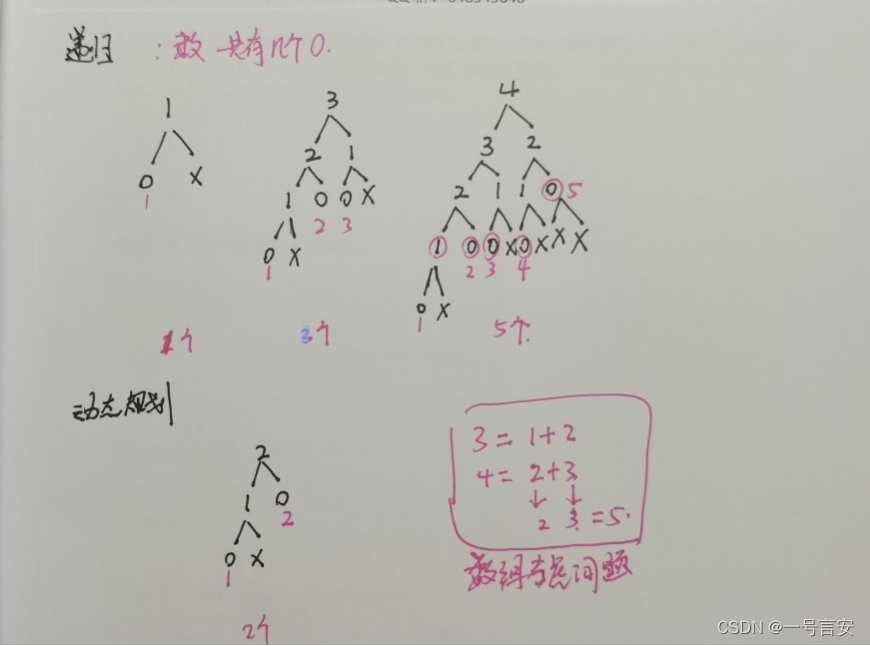 递归 : 数 一共有几个0.
1
0 X
1
3
2 1
1 0 0 X
2 3
0 X
1
4
3 2
2 1 1 0 5
1 0 0 X 0 X X X
2 3 4
0 X
1
1个 3个 5个.
动态规划
2
1 0
2
0 X
1
2个
3 = 1+2
4 = 2+3
↓ ↓
2 3. =5.
数组 问题
CSDN @一号言安